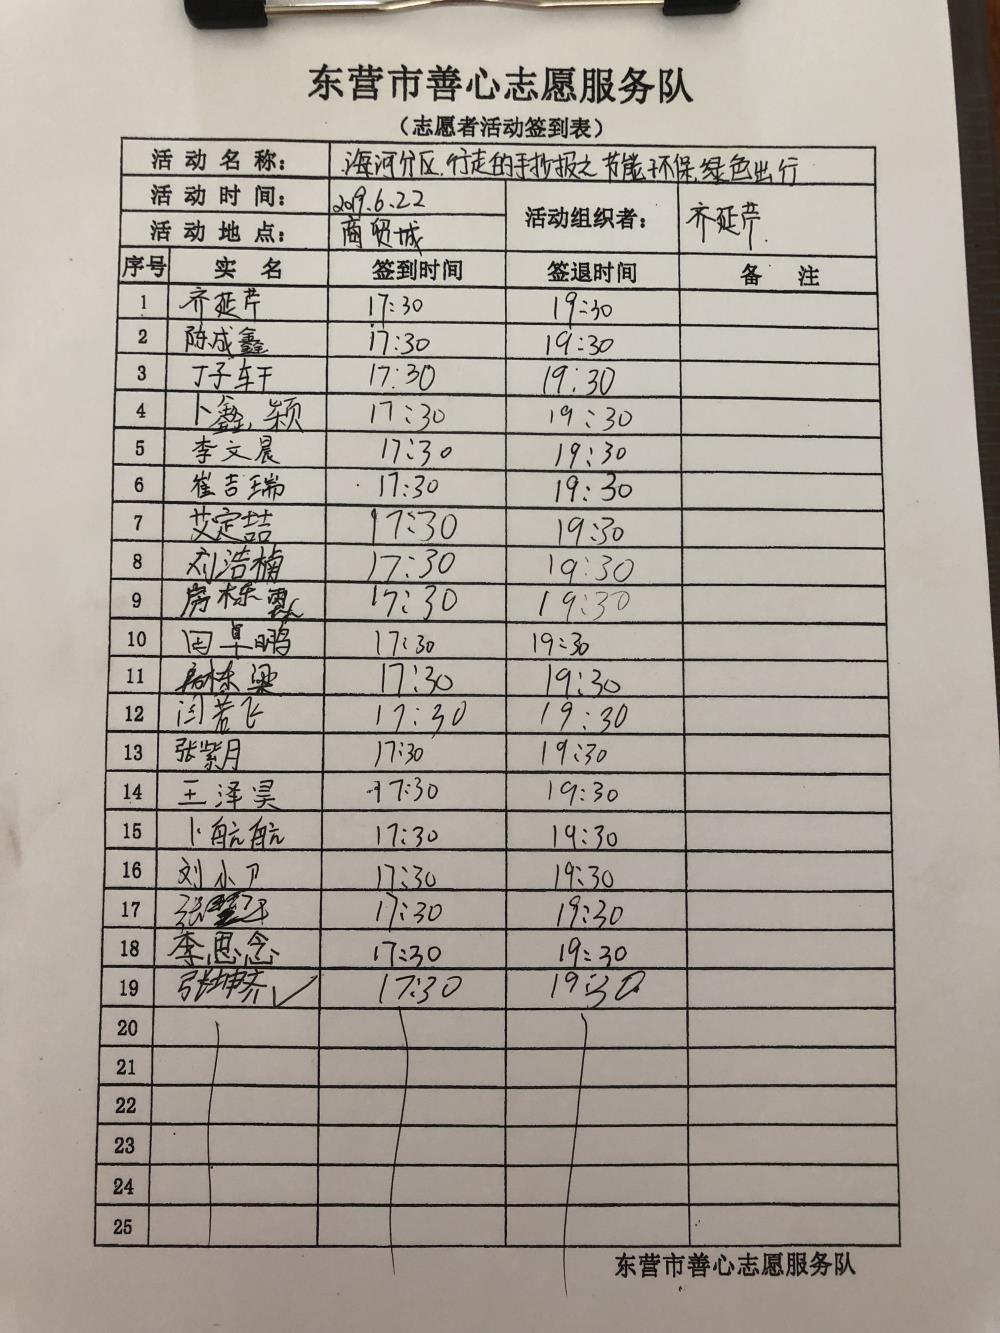 东营市善心志愿服务队
（志愿者活动签到表）
活动名称： 海河分区.行走的手抄报之节能环保.绿色出行
活动时间： 2019.6.22 活动组织者： 齐延芹
活动地点： 商贸城
序号 实名 签到时间 签退时间 备注
1 齐延芹 17:30 19:30
2 陈成鑫 17:30 19:30
3 丁子轩 17:30 19:30
4 卜鑫颖 17:30 19:30
5 李文晨 17:30 19:30
6 崔吉瑞 17:30 19:30
7 艾定喆 17:30 19:30
8 刘浩楠 17:30 19:30
9 房栋 17:30 19:30
10 田卓鹏 17:30 19:30
11 房栋梁 17:30 19:30
12 闫若飞 17:30 19:30
13 张紫月 17:30 19:30
14 王泽昊 17:30 19:30
15 卜航航 17:30 19:30
16 刘小卫 17:30 19:30
17 张 17:30 19:30
18 李思念 17:30 19:30
19 张坤齐 17:30 19:30
20
21
22
23
24
25
东营市善心志愿服务队